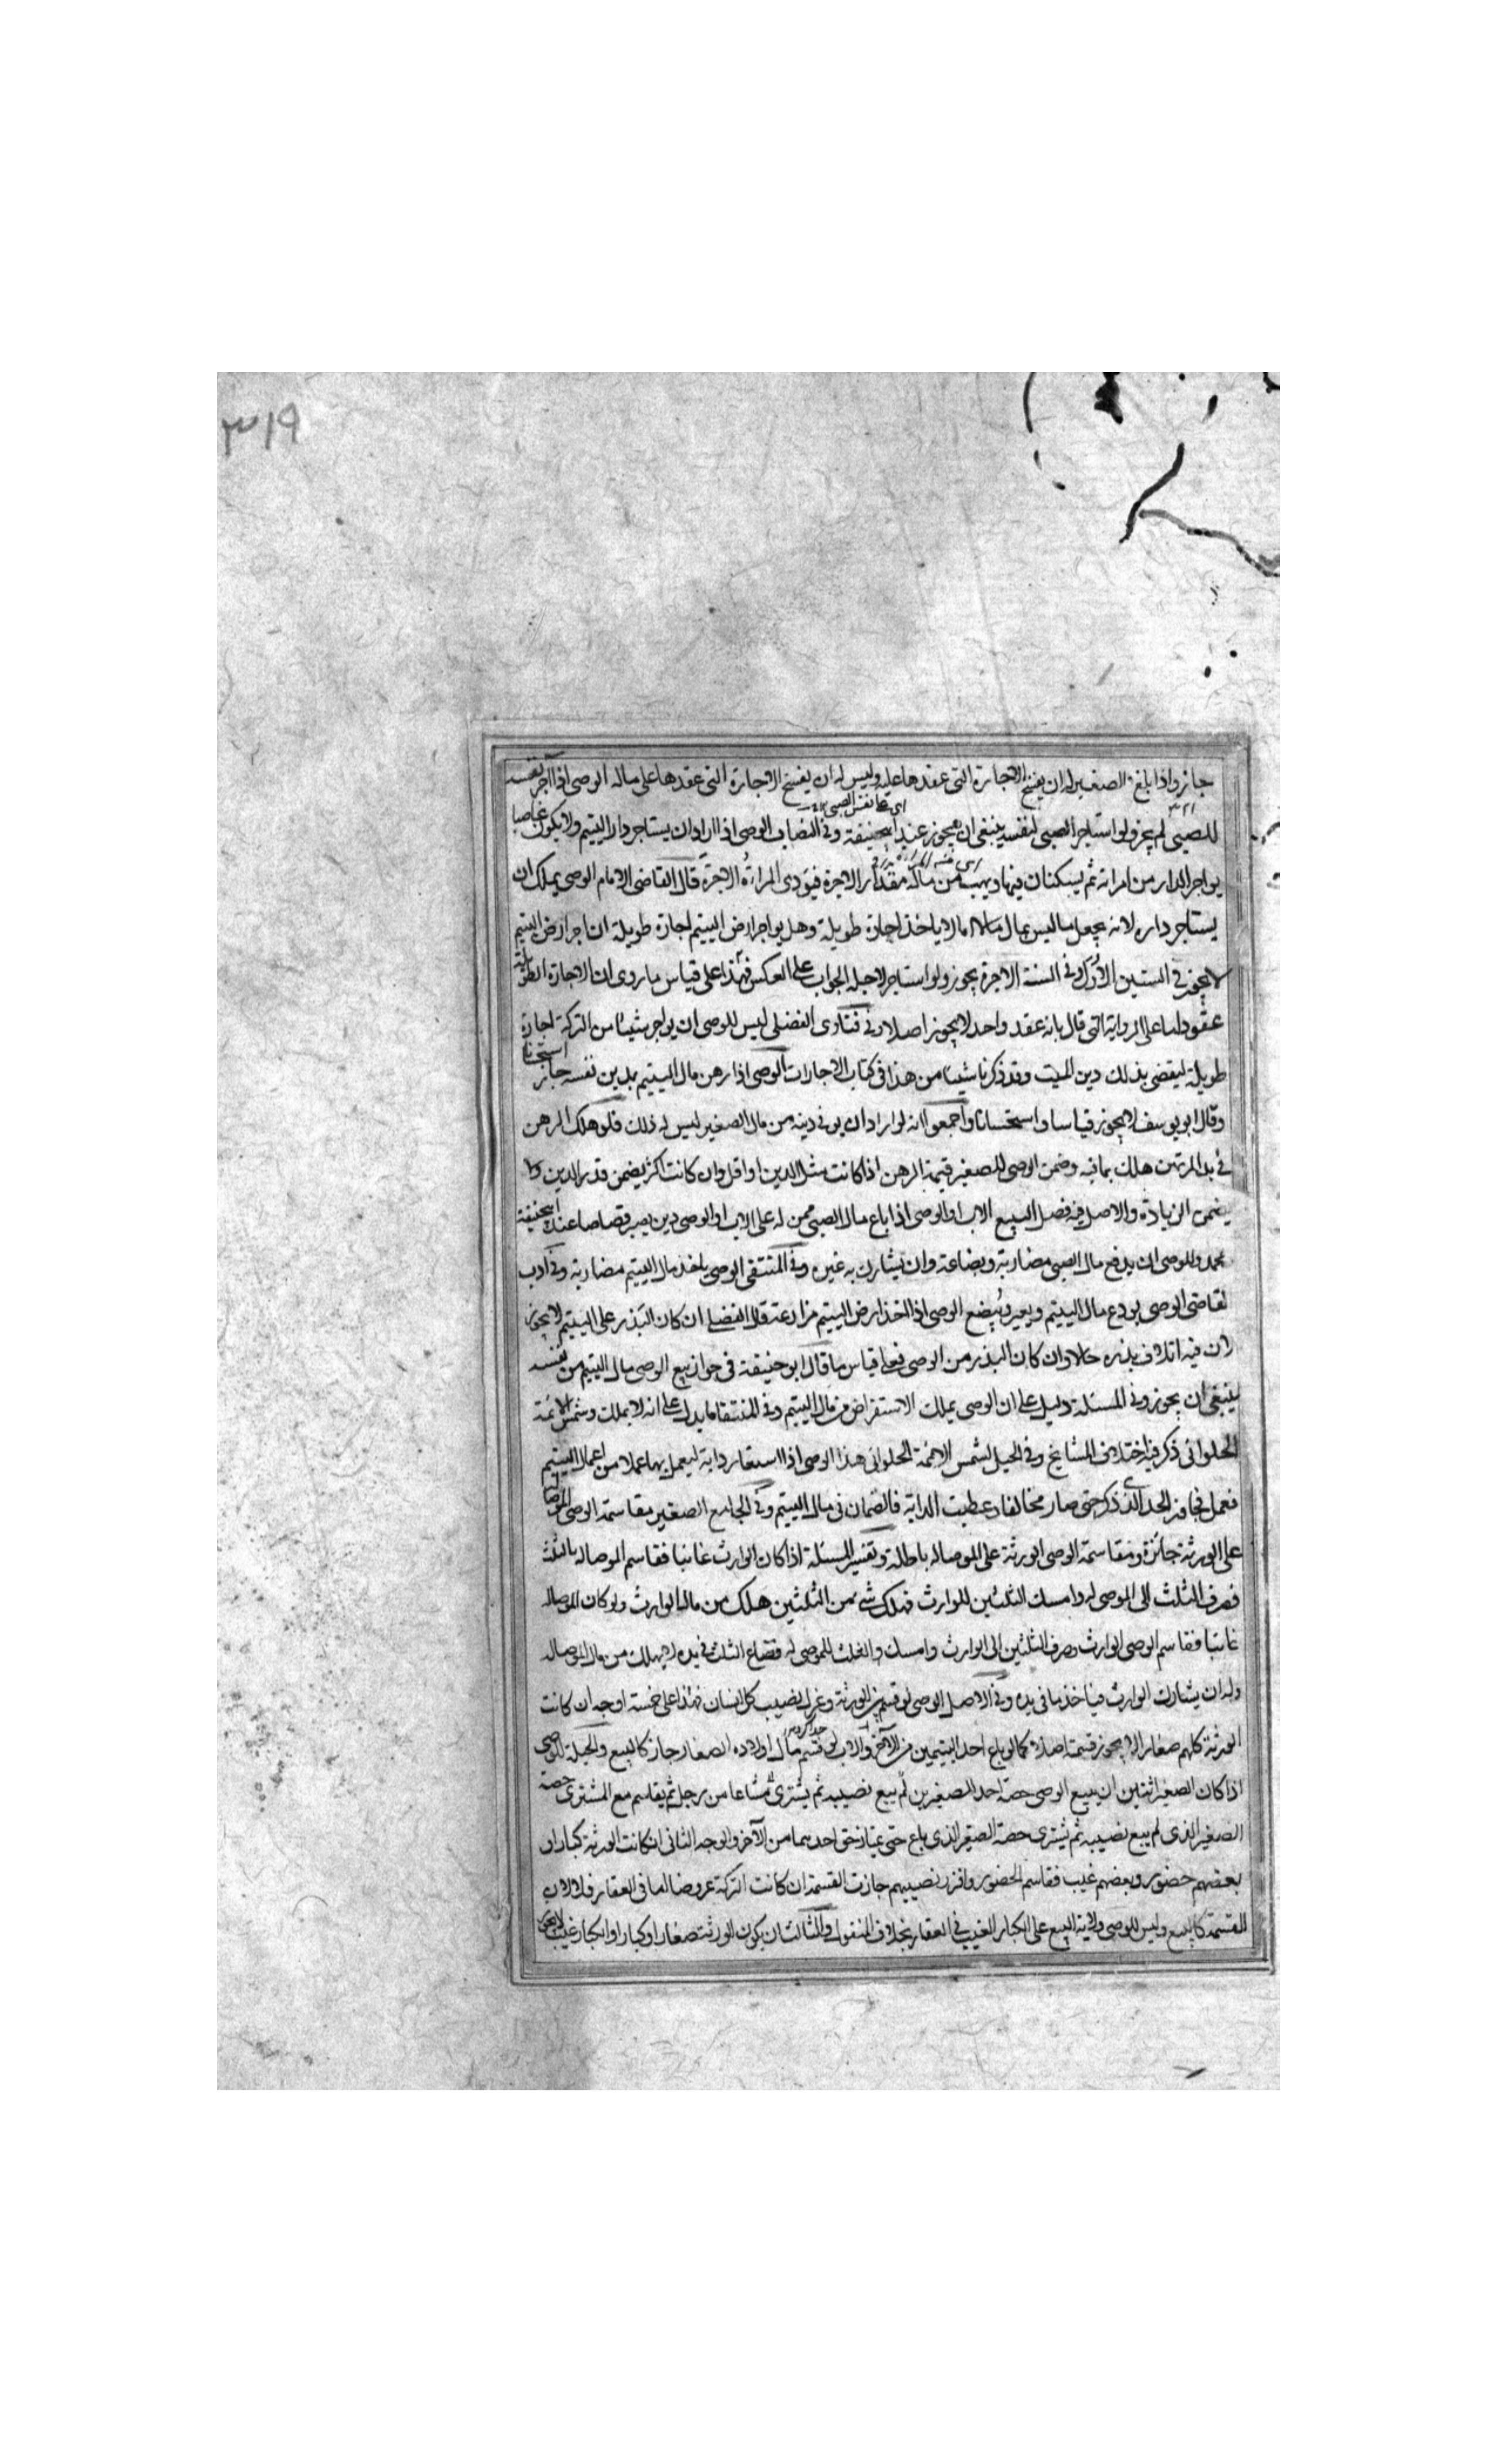 ٣١٩
جاز واذا بلغ الصغير له ان يفسخ الاجارة التى عقدها عليه وليس له ان يفسخ الاجارة التى عقدها على ماله الوصى اذا آجر نفسه
اى على نفس الصبى
للصبى لم يجز ولو استاجر الصبى لنفسه ينبغى ان يجوز عند ابيحنيفة وفى النصاب الوصى اذا اراد ان يستاجر دار اليتيم ولا يكون غاصبا
يواجر الدار من امراته ثم يسكنان فيها ويهب من ماله مقدار الاجرة فيؤدى المراة الاجرة قال القاضى الامام الوصى يملك ان
يستاجر داره لانه يجعل ماليس بمال مالا اما لا ياخذ اجارة طويلة وهل يواجر ارض اليتيم اجارة طويلة ان اجر ارض اليتيم
لا يجوز فى السنين الاول وفى السنة الاجرة يجوز ولو استاجر لاجله الجواب على العكس فهذا على قياس ما روى ان الاجارة الطويلة
عقود اما على الرواية التى قال بانه عقد واحد لا يجوز اصلا وفى فتاوى الفضلى ليس للوصى ان يواجر شيئا من التركة اجارة
طويلة ليقضى بذلك دين الميت وقد ذكرنا شيئا من هذا فى كتاب الاجارات الوصى اذا رهن مال اليتيم بدين نفسه جاز استحسانا
وقال ابو يوسف لا يجوز قياسا واستحسانا واجمعوا انه لو اراد ان يوفى دينه من مال الصغير ليس له ذلك فلو هلك الرهن
فى يد المرتهن هلك بما فيه وضمن الوصى للصغير قيمة الرهن اذا كانت مثل الدين او اقل وان كانت اكثر يضمن قدر الدين ولا
يضمن الزيادة والاصل فيه فصل البيع الاب او الوصى اذا باع مال الصبى ممن له على الاب او الوصى دين يصير قصاصا عند ابيحنيفة
محمد وللوصى ان يدفع مال الصبى مضاربة وبضاعة وان يشارك به غيره وفى المنتقى الوصى ياخذ مال اليتيم مضاربة وفى ادب
لقاضى الوصى يودع مال اليتيم ويعير ويبضع الوصى اذا اتخذ ارض اليتيم مزارعة قال الفضلى ان كان البذر على اليتيم لا يجوز
لان فيه اتلاف بذره حالا وان كان البذر من الوصى فعلى قياس ما قال ابو حنيفة فى جواز بيع الوصى مال اليتيم من نفسه
ينبغى ان يجوز وفى المسئلة دليل على ان الوصى يملك الاستقراض من مال اليتيم وفى المنتقا ما يدل على انه لا يملك وشمس الائمة
الحلوانى ذكر فيه اختلاف المشايخ وفى الحيل لشمس الائمة الحلوانى هذا الوصى اذا استعار دابة ليعمل بها عملا من اعمال اليتيم
فعمل فجاوز الحد الذى ذكر حتى صار مخالفا وعطبت الدابة فالضمان فى مال اليتيم وفى الجامع الصغير مقاسمة الوصى الموصا له
على الورثة جائزة ومقاسمة الوصى الورثة على الموصاله باطلة وتفسير المسئلة اذا كان الوارث غائبا فقاسم الموصاله بالثلث
فصرف الثلث الى الموصى له وامسك الثلثين للوارث فهلك شئ من الثلثين هلك من مال الوارث ولو كان الموصاله
غائبا فقاسم الوصى الوارث وصرف الثلثين الى الوارث وامسك والثلث للموصى له فضاع الثلث فى يده لا يهلك من مال الموصاله
وله ان يشارك الوارث فياخذ ما فى يده وفى الاصل الوصى لو قسم بين الورثة وعزل نصيب كل انسان فهذا على خمسة اوجه ان كانت
الورثة كلهم صغارا لا يجوز قسمته اصلا كما لو باع احد اليتيمين من الآخر والاب لو قسم مال اولاده الصغار جاز كالبيع والحيلة للوصى
اذا كان الصغير اثنين ان يبيع الوصى حصة احد الصغيرين لم يبع نصيبه ثم يشترى مشاعا من رجل ثم يقاسم مع المشترى حصة
الصغير الذى لم يبع نصيبه ثم يشترى حصة الصغير الذى باع حتى يمتاز حق احدهما من الآخر والوجه الثانى ان كانت الورثة كبارا
بعضهم حضور وبعضهم غيب فقاسم الحضور وافرز نصيبهم جازت القسمة ان كانت التركة عروضا اما فى العقار فلا لان
القسمة كالبيع وليس للوصى ولاية البيع على الكبار الغيب فى العقار بخلاف المنقول والثالث ان يكون الورثة صغارا وكبارا والكبار غيب لا يجوز